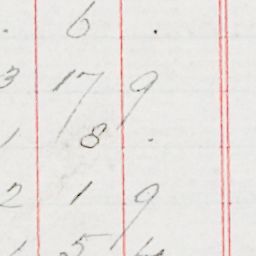 . 6 .
3 17 9
1 8 .
2 1 9
1 5 4